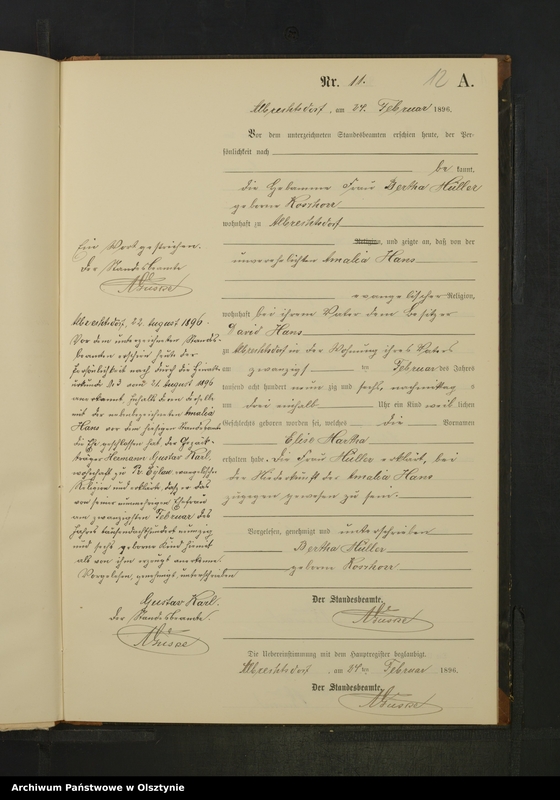 Nr. 11.
12
A.
Albrechtsdorf, am 24. Februar 1896.
Vor dem unterzeichneten Standesbeamten erschien heute, der Per-
sönlichkeit nach
be kannt,
die Hebamme Frau Bertha Hüller
geborne
wohnhaft zu Albrechtsdorf
Religion, und zeigte an, daß von der
unverehelichten Amalia Hans
evangelischer Religion,
wohnhaft bei ihrem Vater dem Besitzer
David Hans
zu Albrechtsdorf in der Wohnung ihres Vaters
am zwanzigsten Februar des Jahres
tausend acht hundert neun zig und sechs nachmittags
um drei einhalb Uhr ein Kind weib lichen
Geschlechts geboren worden sei, welches die Vornamen
Elise Martha
erhalten habe. Die Frau Hüller erklärt, bei
der Niederkunft der Amalia Hans
zugegen gewesen zu sein.
Vorgelesen, genehmigt und unterschrieben
Bertha Hüller
geborne
Der Standesbeamte.
Die Uebereinstimmung mit dem Hauptregister beglaubigt.
Albrechtsdorf, am 24 ten Februar 1896.
Der Standesbeamte.
Ein Wort gestrichen.
Der Standesbeamte
Albrechtsdorf, 22. August 1896.
Vor dem unterzeichneten Standes-
beamten erschien heute der
Persönlichkeit nach durch die Heirats-
urkunde des vom 21. August 1896
anerkannt, derselbe
mit der nebenbezeichneten Amalia
Hans vor dem hiesigen Standesamte
die Ehe geschlossen hat, der
Hermann Gustav Karl,
wohnhaft zu Pr. Eylau, evangelischer
Religion und erklärte, daß er das
von seiner nunmehrigen Ehefrau
am zwanzigsten Februar des
Jahres tausendachthundert neunzig
und sechs geborne Kind hiermit
als von ihm erzeugt anerkenne.
Vorgelesen, genehmigt, unterschrieben
Gustav Karl.
Der Standesbeamte
Archiwum Państwowe w Olsztynie